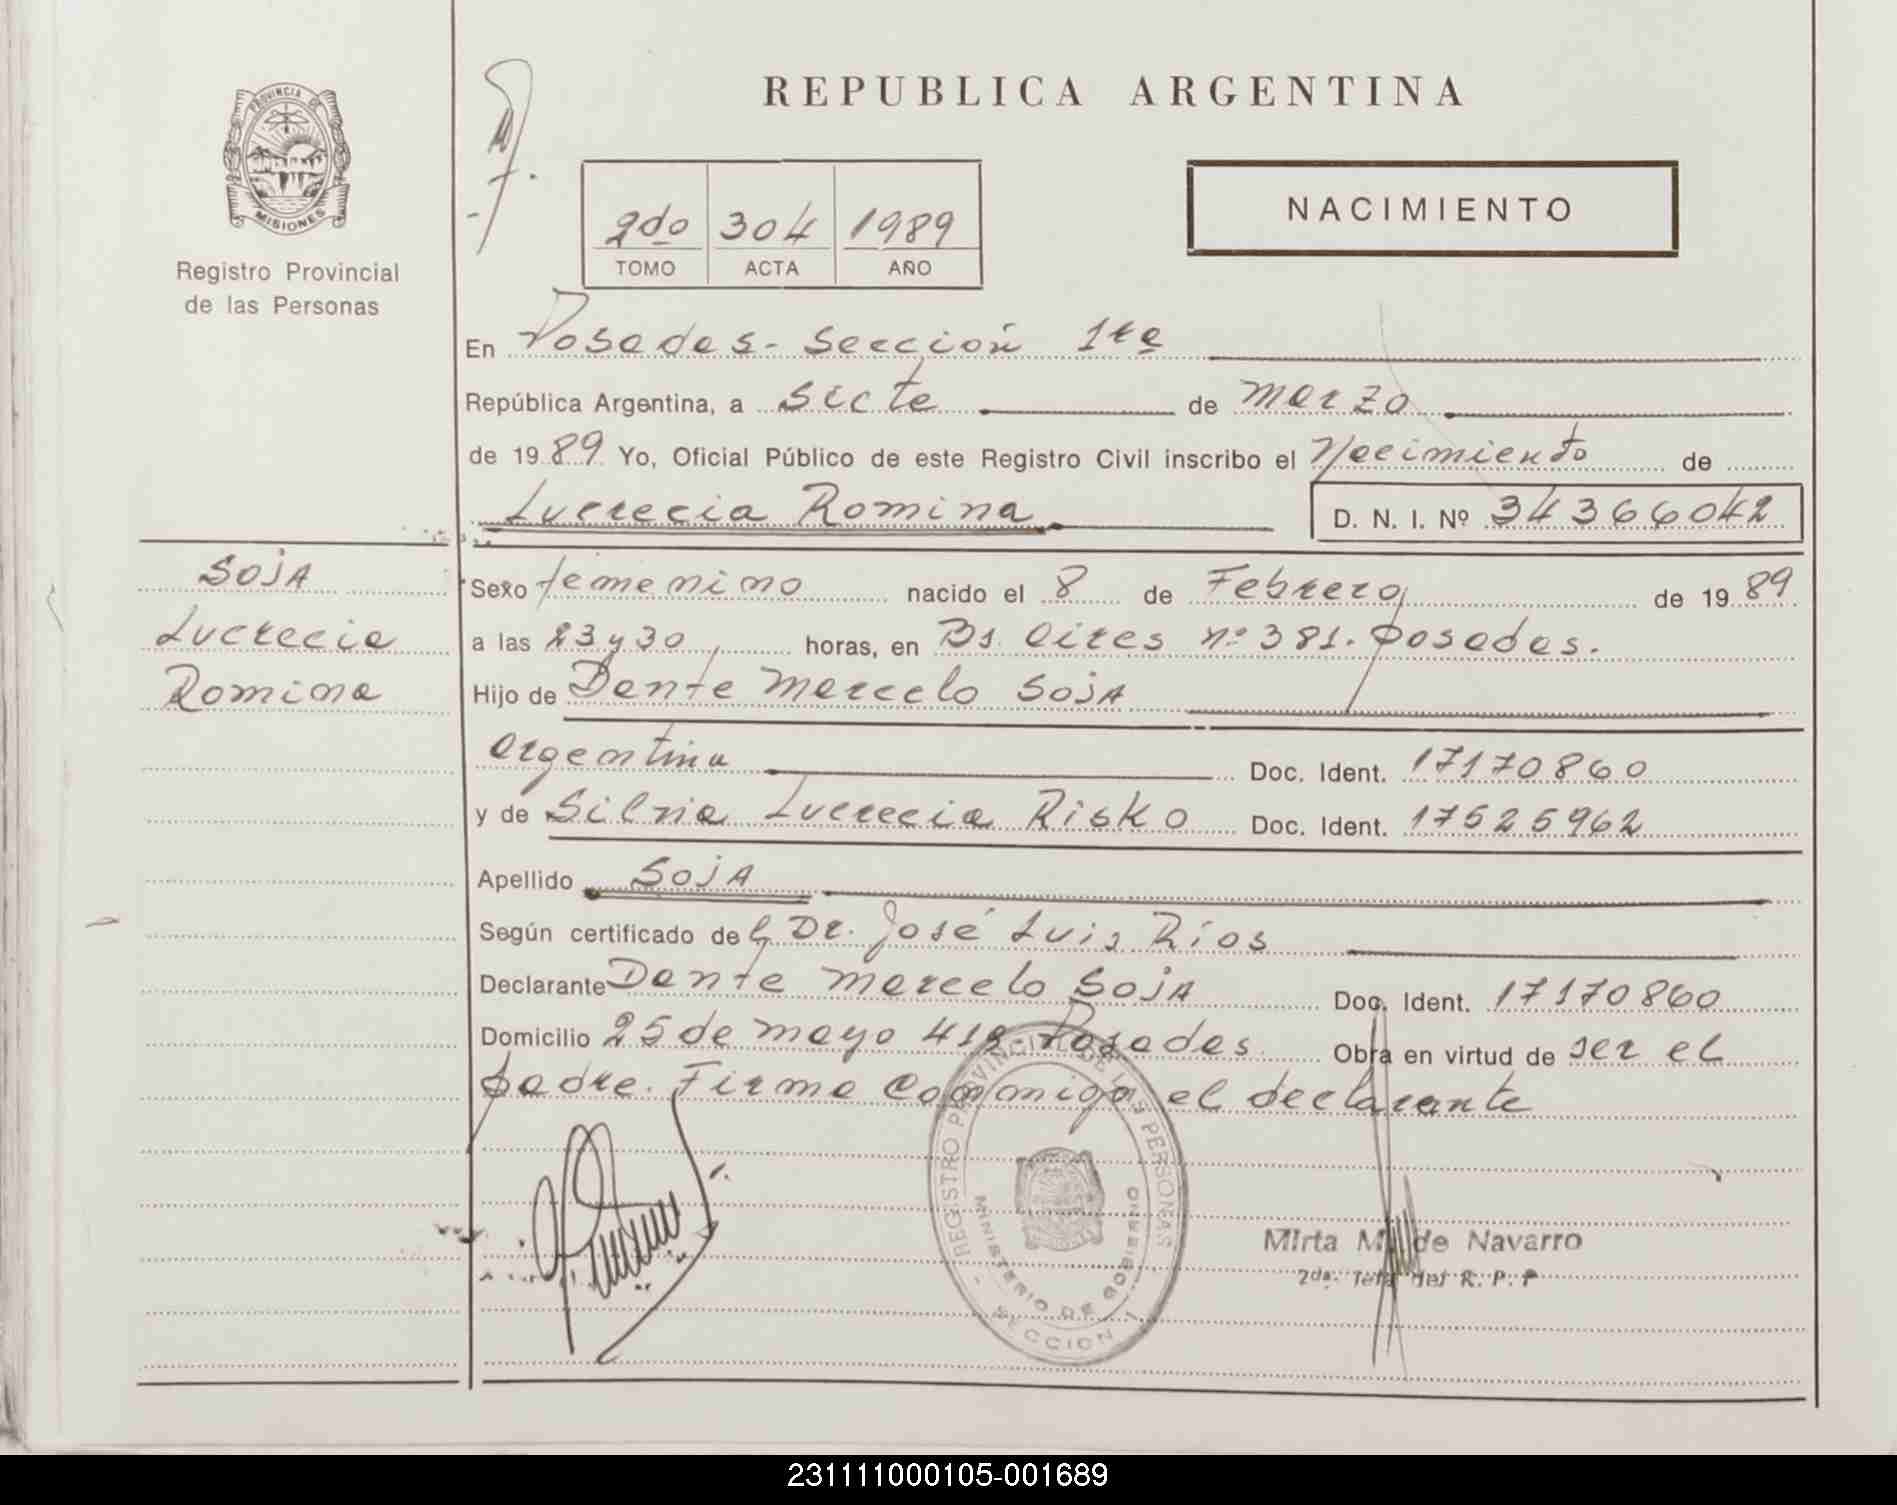 PROVINCIA DE
MISIONES
Registro Provincial
de las Personas
REPUBLICA ARGENTINA
2do 304 1989
TOMO ACTA AÑO
NACIMIENTO
En Posadas - Sección 1ra
República Argentina, a siete de marzo
de 1989 Yo, Oficial Público de este Registro Civil inscribo el Nacimiento de
Lucrecia Romina D. N. I. Nº 34366042
SOJA
Lucrecia
Romina
Sexo femenino nacido el 8 de Febrero de 1989
a las 23 y 30 horas, en Bs. Aires nº 381. Posadas.
Hijo de Dante Marcelo SOJA
argentina Doc. Ident. 17170860
y de Silvia Lucrecia Risko Doc. Ident. 17525962
Apellido SOJA
Según certificado del Dr. José Luis Ríos
Declarante Dante Marcelo SOJA Doc. Ident. 17170860
Domicilio 25 de mayo 418 - Posadas Obra en virtud de ser el
padre. Firma conmigo el declarante
REGISTRO PROVINCIAL DE LAS PERSONAS
MINISTERIO DE GOBIERNO
SECCION 1
Mirta M. de Navarro
2da. Jefa del R. P. P
231111000105-001689